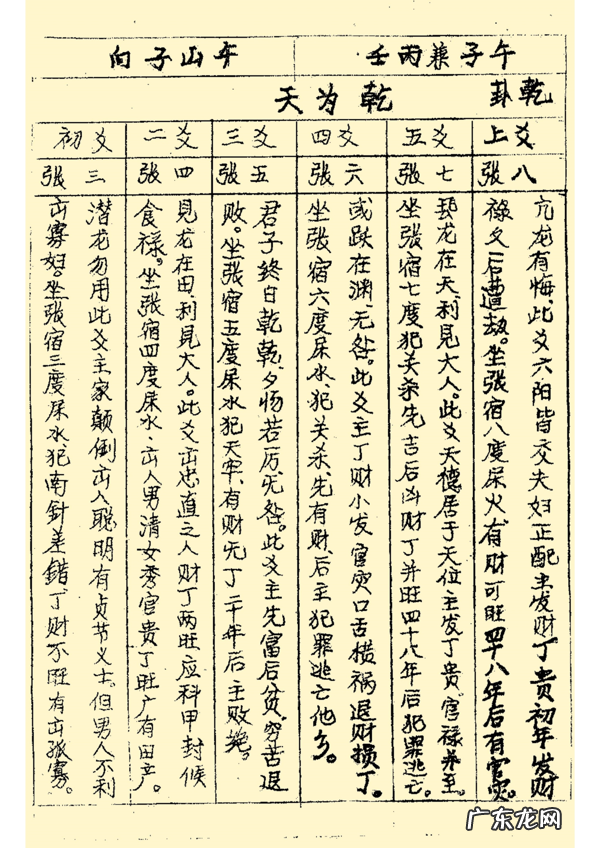 壬丙兼子午
午山子向
乾卦
乾为天
上爻
张八
亢龙有悔、此爻六阳皆交夫妇正配主发财丁贵初年发财
禄夕后遭劫。坐张宿八度尿火有财可旺四十八年后有官灾。
五爻
张七
飞龙在天、利見大人。此爻天德居于天位主发丁贵、官禄并至。
坐張宿七度犯关杀先吉后凶财丁并旺四十八年后犯罪逃亡。
四爻
张六
或跃在渊、无咎。此爻主丁财小发官灾口舌横祸退财损丁。
坐张宿六度尿水、犯关杀、先有财、后主犯罪逃亡他乡。
三爻
张五
君子终日乾乾、夕惕若厉、无咎。此爻主先富后贫、穷苦退
败。坐张宿五度尿水犯天牢、有财无丁二十年后主败绝。
二爻
张四
見龙在田、利見大人。此爻出忠直之人财丁两旺、应科甲封候
食禄。坐张宿四度尿水、出人男清女秀官贵丁旺广有田产。
初爻
张三
潜龙勿用此爻主家颠倒出人聪明有贞节义士。但男人不利
出寡妇。坐张宿三度尿水犯南針差錯、丁财不旺有出孤寡。
广东龙网